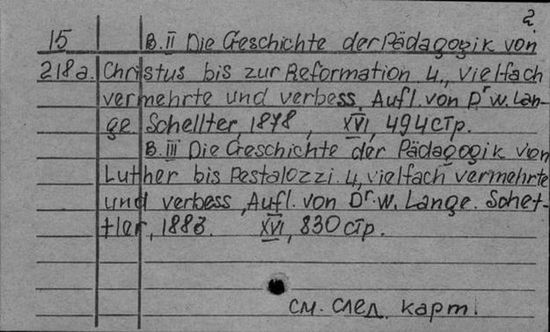 2.
15 B. II Die Geschichte der Pädagogik von
218a. Christus bis zur Reformation 4., vielfach
vermehrte und verbess, Aufl. von Dr W. Lan-
ge. Schellter, 1878, XVI, 494 стр.
B. III Die Geschichte der Pädagogik von
Luther bis Pestalozzi. 4, vielfach vermehrte
und verbess, Aufl. von Dr. W. Lange. Schet-
tler, 1883. XVI, 830 стр.
см. след. карт.